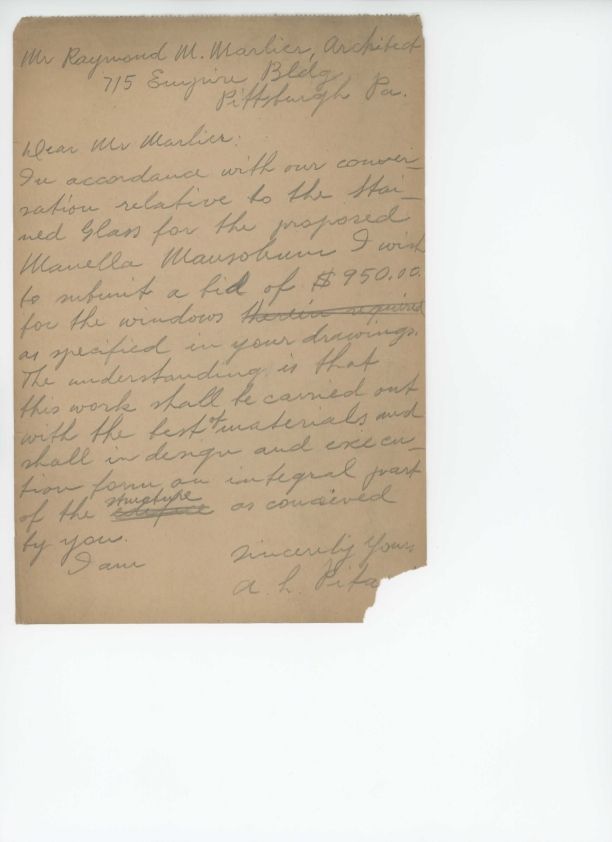 Mr Raymond M. Marlier, Architect
715 Empire Bldg
Pittsburgh Pa.
Dear Mr Marlier:
In accordance with our conver-
sation relative to the Stai-
ned Glass for the proposed
Manella Mausoleum I wish
to submit a bid of $950.00
for the windows therein required
as specified in your drawings.
The understanding is that
this work shall be carried out
with the best of materials and
shall in design and execu-
tion form an integral part
of the edifice structure as conceived
by you.
I am Sincerely Yours
A. L. Pita